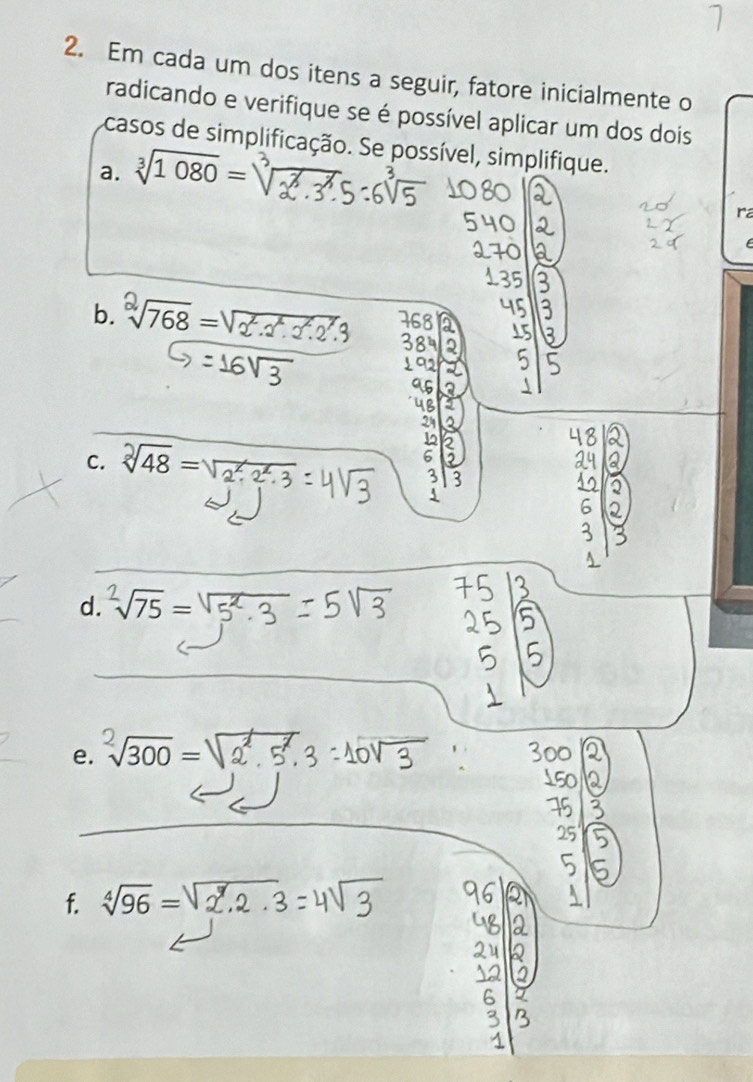 7
2. Em cada um dos itens a seguir, fatore inicialmente o
radicando e verifique se é possível aplicar um dos dois
casos de simplificação. Se possível, simplifique.
a. ∛1 080 = ∛2³·3³·5 = 6∛5
1080 | 2
540 | 2
270 | 2
135 | 3
45 | 3
15 | 3
5 | 5
1
b. ²√768 = √2²·2²·2²·2²·3
= 16√3
768 | 2
384 | 2
192 | 2
96 | 2
48 | 2
24 | 2
12 | 2
6 | 2
3 | 3
1
c. ²√48 = √2²·2²·3 = 4√3
48 | 2
24 | 2
12 | 2
6 | 2
3 | 3
1
d. ²√75 = √5²·3 = 5√3
75 | 3
25 | 5
5 | 5
1
e. ²√300 = √2²·5²·3 = 10√3
300 | 2
150 | 2
75 | 3
25 | 5
5 | 5
1
f. ⁴√96 = √2⁴·2·3 = 4√3
96 | 2
48 | 2
24 | 2
12 | 2
6 | 2
3 | 3
1